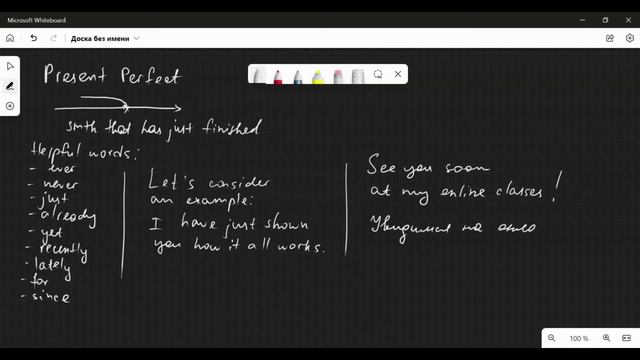 Microsoft Whiteboard
Доска без имени
Present Perfect
smth that has just finished
Helpful words:
- ever
- never
- just
- already
- yet
- recently
- lately
- for
- since
Let's consider
an example:
I have just shown
you how it all works.
See you soon
at my online classes!
Увидимся на
100 %